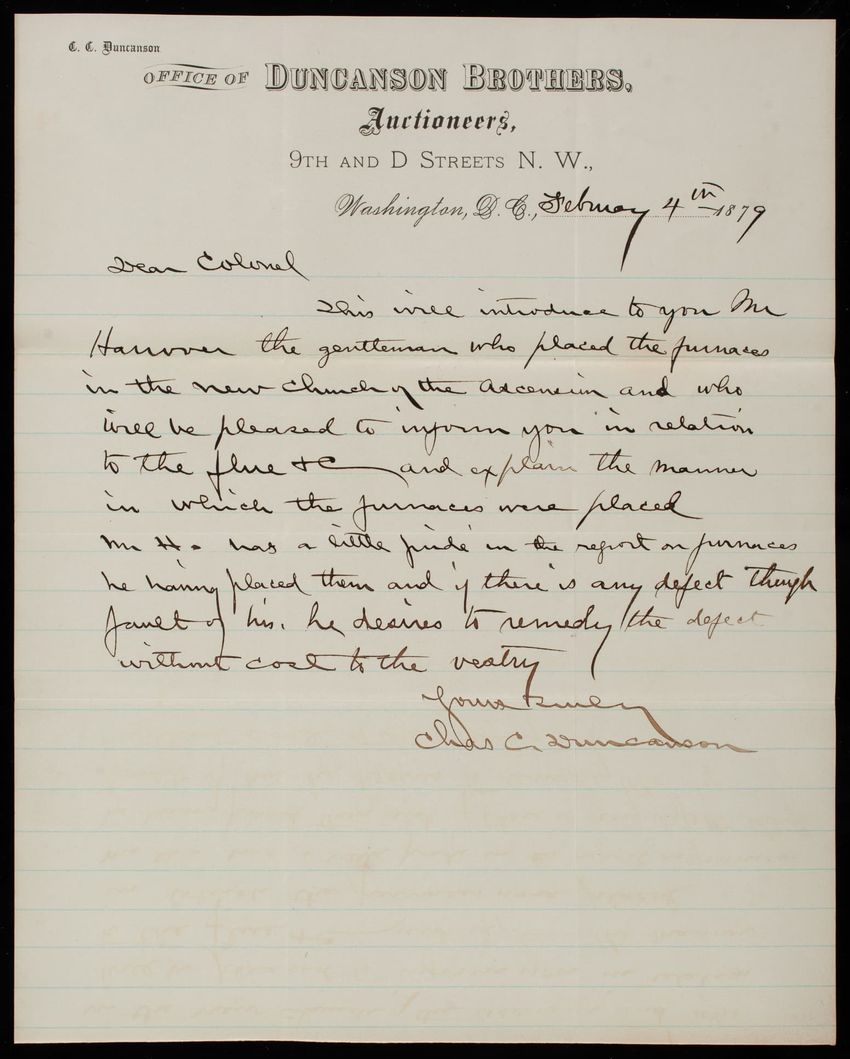 C. C. Duncanson
OFFICE OF DUNCANSON BROTHERS,
Auctioneers,
9TH AND D STREETS N. W.,
Washington, D. C., February 4th 1879
Dear Colonel
This will introduce to you Mr
Hanover the gentleman who placed the furnaces
in the new Church of the Ascension and who
will be pleased to inform you in relation
to the flue &c and explain the manner
in which the furnaces were placed
Mr H. has a little pride in the report on furnaces
he having placed them and if there is any defect though
fault of his, he desires to remedy the defect
without cost to the vestry
Yours truly
Chas C. Duncanson